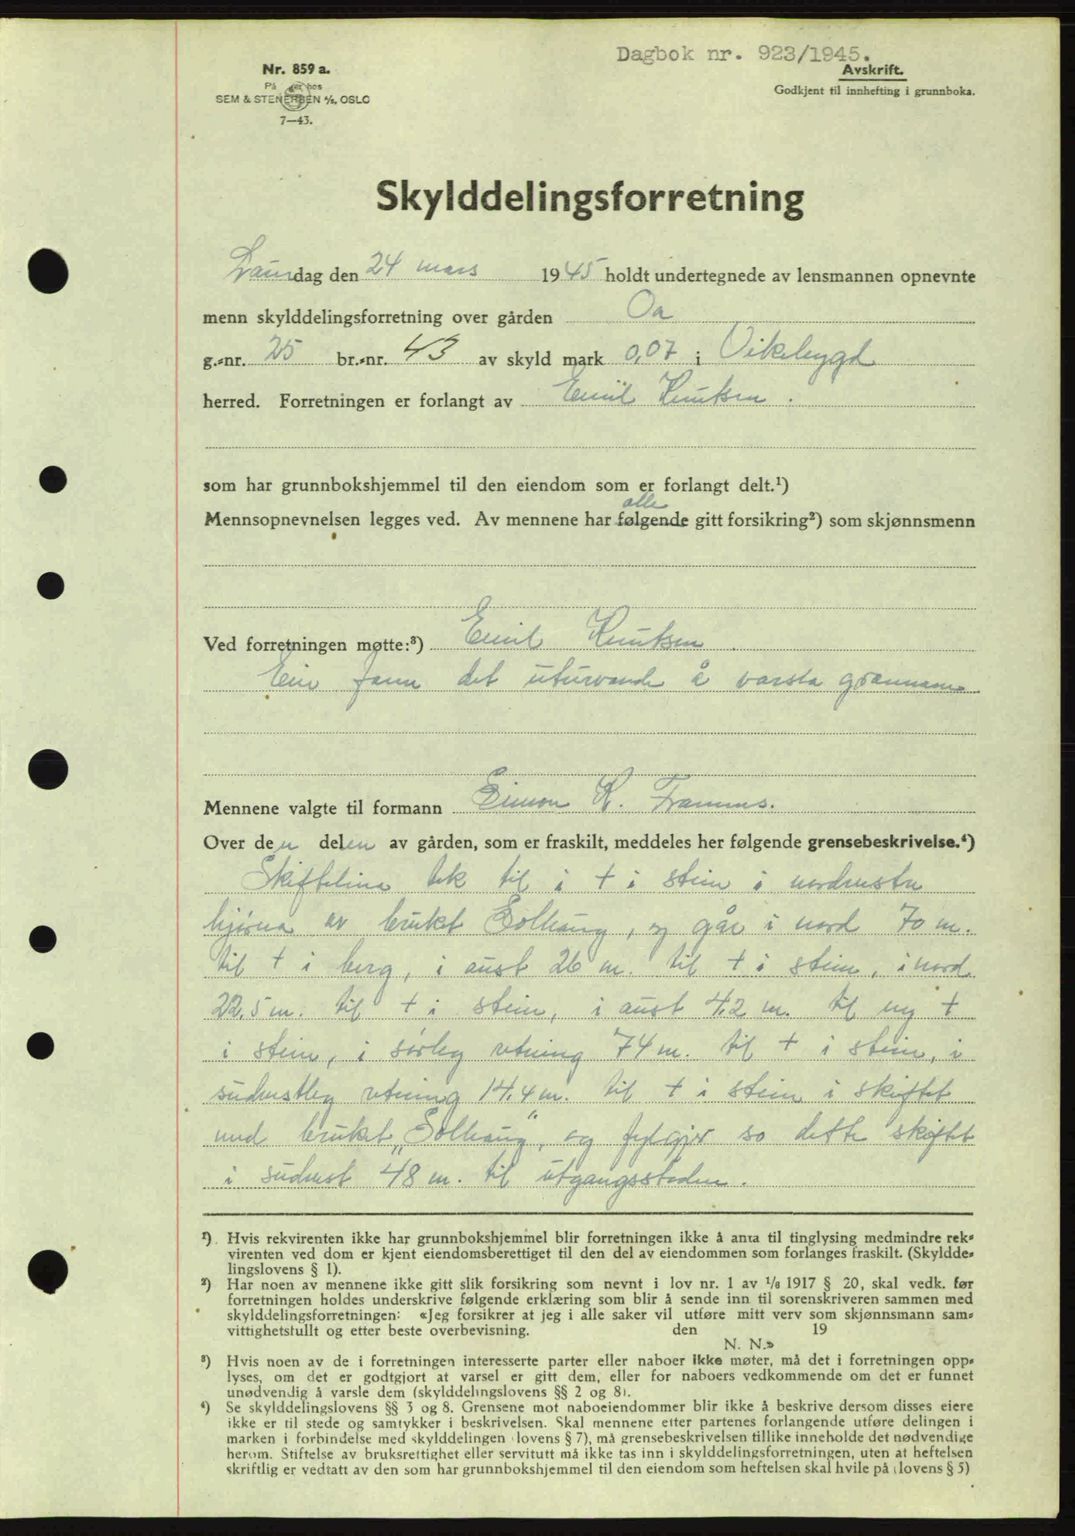 Dagbok nr. 923/1945.
Nr. 859 a.
På lager hos
SEM & STENERSEN A/S, OSLO
7—43.
Avskrift.
Godkjent til innhefting i grunnboka.
Skylddelingsforretning
Laurdag den 24 mars 1945 holdt undertegnede av lensmannen opnevnte
menn skylddelingsforretning over gården Oa
g.-nr. 25 br.-nr. 43 av skyld mark 0,07 i Vikebygd
herred. Forretningen er forlangt av Emil Knutsen.
som har grunnbokshjemmel til den eiendom som er forlangt delt.¹)
alle
Mennsopnevnelsen legges ved. Av mennene har følgende gitt forsikring²) som skjønnsmenn
Ved forretningen møtte:³) Emil Knutsen
Ein fann det uturvande å varsla grannane
Mennene valgte til formann Simon K. Framnes.
Over den delen av gården, som er fraskilt, meddeles her følgende grensebeskrivelse.⁴)
Skiftelina tek til i + i stein i nordvestre
hjørna av bruket Solhaug, og går i nord 70 m.
til + i berg, i aust 26 m. til + i stein, i nord
22,5 m. til + i stein, i aust 42 m. til ny +
i stein, i sørleg retning 74 m. til + i stein, i
sudvestleg retning 14,4 m. til + i stein i skiftet
med bruket „Solhaug", og fylgjer so dette skiftet
i sudvest 48 m. til utgangsstaden.
¹) Hvis rekvirenten ikke har grunnbokshjemmel blir forretningen ikke å anta til tinglysing medmindre rek-
virenten ved dom er kjent eiendomsberettiget til den del av eiendommen som forlanges fraskilt. (Skyldde-
lingslovens § 1).
²) Har noen av mennene ikke gitt slik forsikring som nevnt i lov nr. 1 av 1/6 1917 § 20, skal vedk. før
forretningen holdes underskrive følgende erklæring som blir å sende inn til sorenskriveren sammen med
skylddelingsforretningen: «Jeg forsikrer at jeg i alle saker vil utføre mitt verv som skjønnsmann sam-
vittighetsfullt og etter beste overbevisning. den 19
N. N.»
³) Hvis noen av de i forretningen interesserte parter eller naboer ikke møter, må det i forretningen opp-
lyses, om det er godtgjort at varsel er gitt dem, eller for naboers vedkommende om det er funnet
unødvendig å varsle dem (skylddelingslovens §§ 2 og 8).
⁴) Se skylddelingslovens §§ 3 og 8. Grensene mot naboeiendommer blir ikke å beskrive dersom disses eiere
ikke er til stede og samtykker i beskrivelsen. Skal mennene etter partenes forlangende utføre delingen i
marken i forbindelse med skylddelingen (lovens § 7), må grensebeskrivelsen tillike inneholde det nødvendige
herom. Stiftelse av bruksrettighet eller servitutt må ikke tas inn i skylddelingsforretningen, uten at heftelsen
skriftlig er vedtatt av den som har grunnbokshjemmel til den eiendom som heftelsen skal hvile på (lovens § 5)